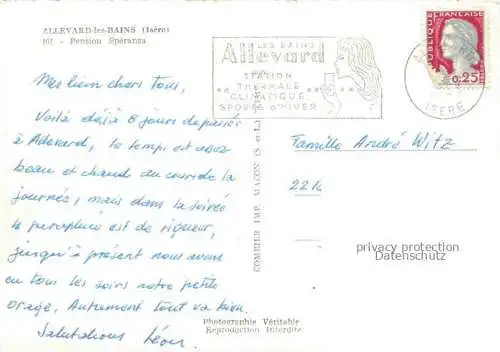 ALLEVARD-les-BAINS (Isère)
101 - Pension Spéranza
LES BAINS
Allevard
STATION
THERMALE
CLIMATIQUE
SPORTS D'HIVER
RÉPUBLIQUE FRANÇAISE
0,25
ISÈRE
Mes bien chers tous,
Voilà déjà 8 jours de passés
à Allevard, le temps est assez
beau et chaud au cours de la
journée, mais dans la soirée
le parapluie est de rigueur,
jusqu'à présent nous avons
eu tous les soirs notre petit
orage, Autrement tout va bien.
Salutations Léon
COMBIER IMP. MACON (S.-et-L.)
Famille André Witz
2214
privacy protection
Datenschutz
Photographie Véritable
Reproduction Interdite